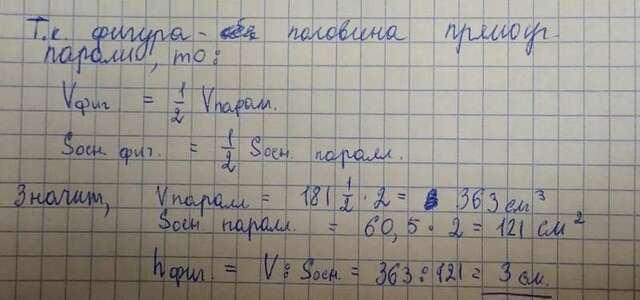 Т.к. фигура - половина прямоуг.
паралл, то:
Vфиг = 1/2 Vпарал.
Sосн. фиг. = 1/2 Sосн. паралл.
Значит, Vпаралл = 181 1/2 · 2 = 363 см³
Sосн паралл. = 60,5 · 2 = 121 см²
hфиг. = V : Sосн. = 363 : 121 = 3 см.